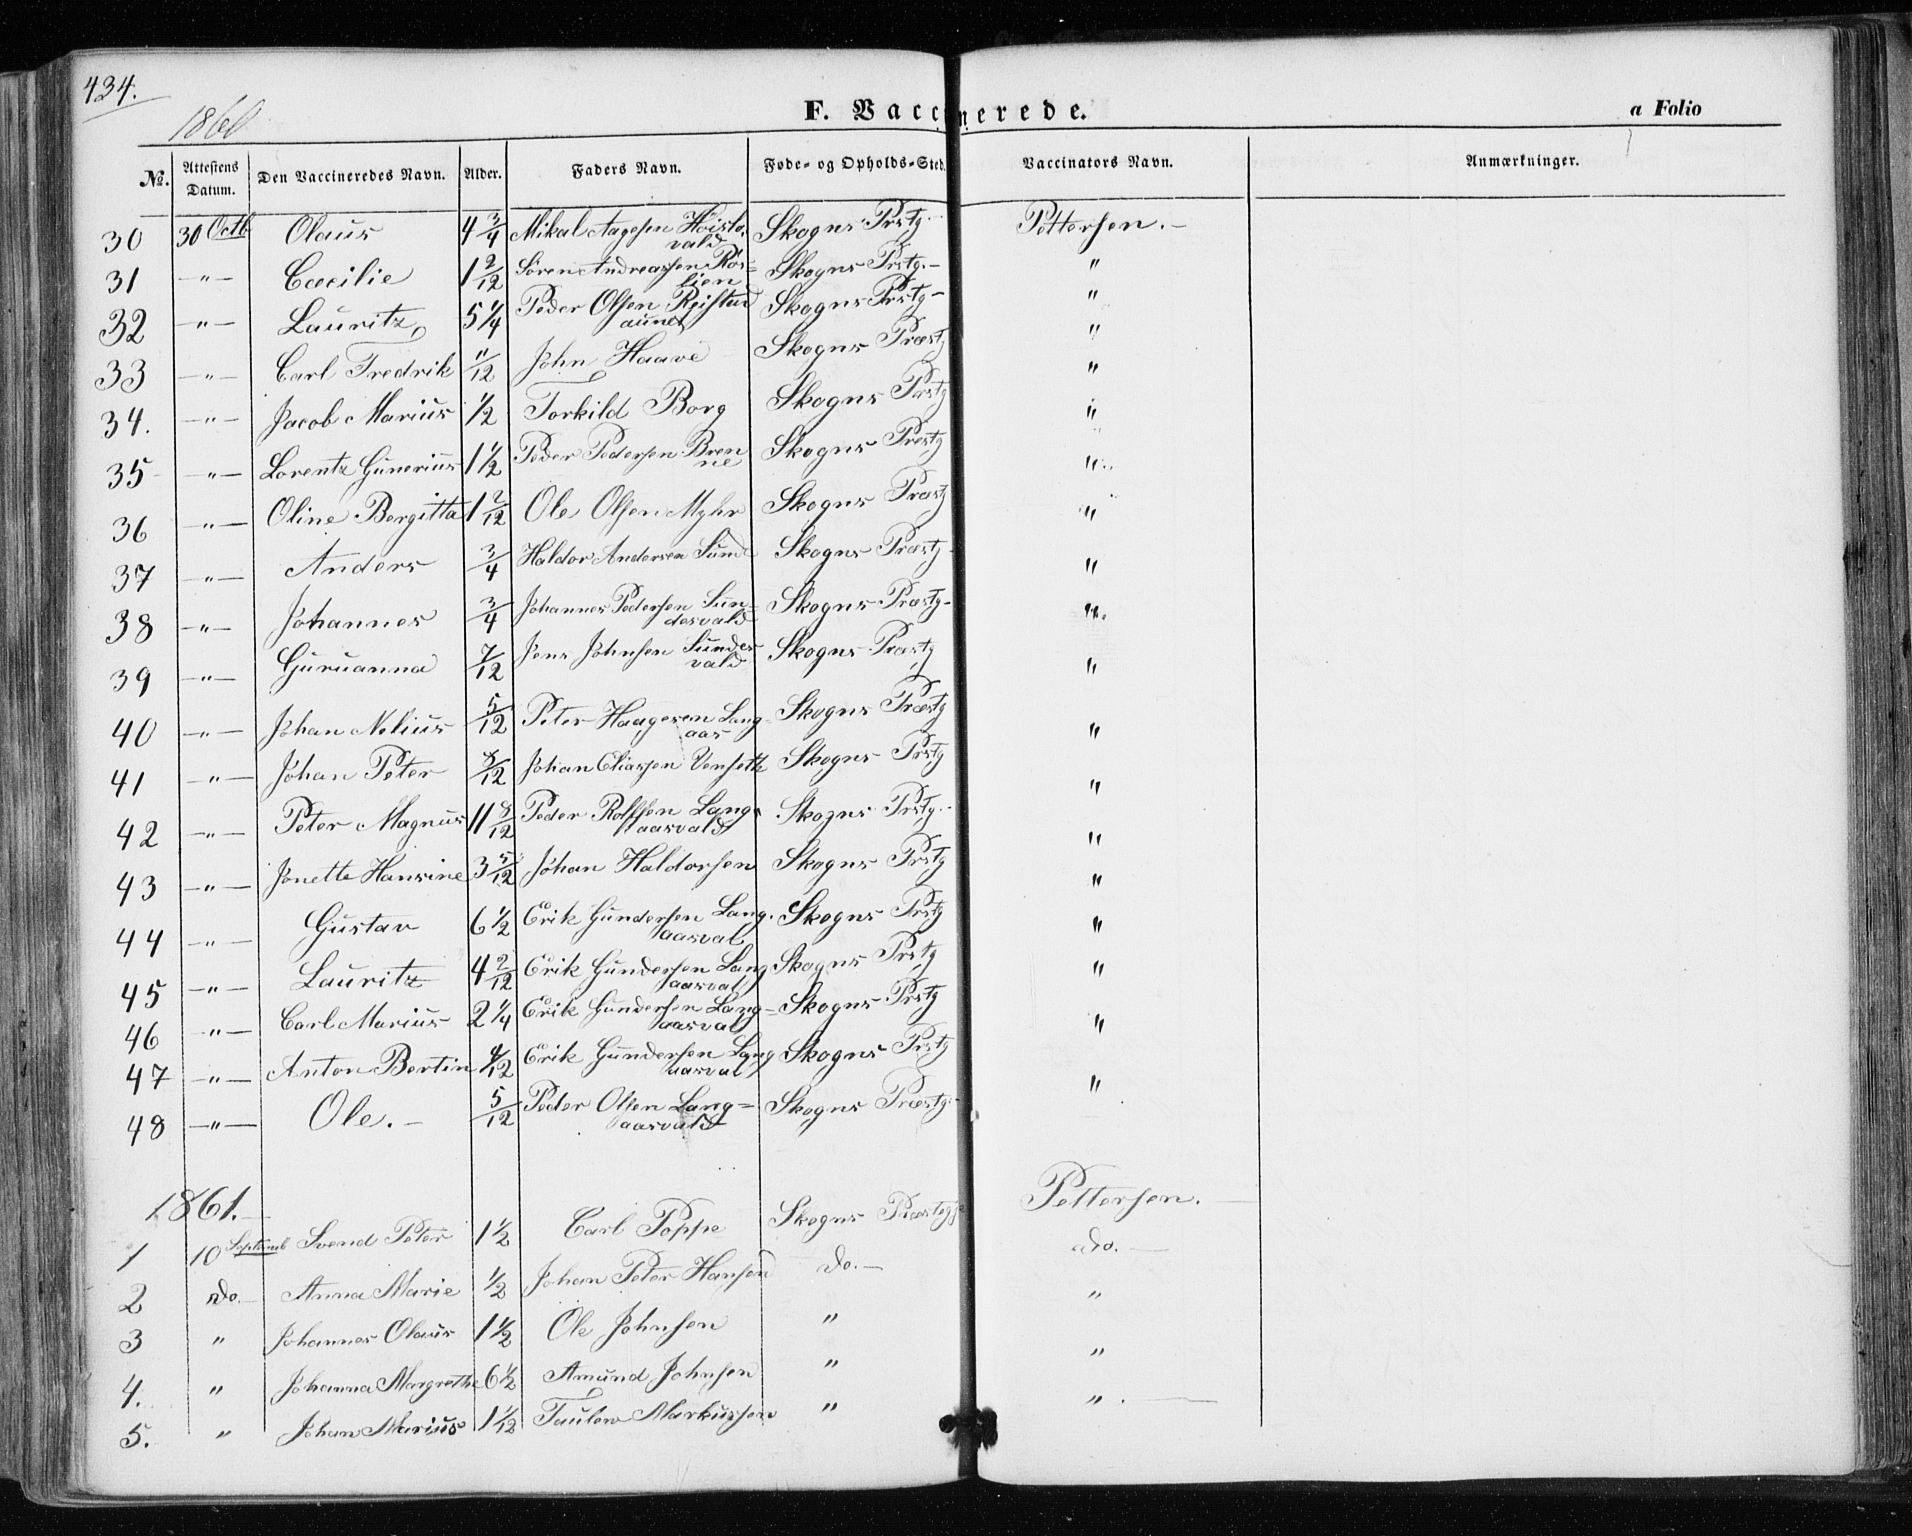 434.
1860
F. Vaccinerede.
a Folio
No. Attestens Datum. Den Vaccineredes Navn. Alder. Faders Navn. Føde- og Opholds-Sted. Vaccinators Navn. Anmærkninger.
30 30 Octb Olaus 4 3/4 Mikal Aagesen Høislo- Skogns Prstg. Pettersen.
vald
31 -"- Cæcilie 1 2/12 Søren Andreassen Røs- Skogns Prstg. "
lien
32 -"- Lauritz 5 1/4 Peder Olsen Skogns Prstg "
aunet
33 -"- Carl Fredrik 11/12 John Haave Skogns Præstg "
34. -"- Jacob Marius 1/2 Torkild Borg Skogns Prstg "
35 -"- Lorentz Gunerius 1 1/2 Peder Pedersen Bren Skogns Prestg "
ne
36 -"- Oline Bergitta 1 2/12 Ole Olsen Myhr Skogns Præstg "
37 -"- Anders 3/4 Haldor Andersen Sund Skogns Præstg "
38 -"- Johannes 3/4 Johannes Pedersen Sun- Skogns Præstg "
desvald
39 -"- Guruanna 7/12 Jens Johnsen Sundes Skogns Præstg "
vald
40 -"- Johan Nelius 5/12 Peter Haagesen Lang- Skogns Præstg "
aas
41 -"- Johan Peter 8/12 Johan Eliassen Venseth Skogns Prstg "
42 -"- Peter Magnus 11 8/12 Peder Rolfsen Lang- Skogns Prstg. "
aasvald
43 -"- Jonette Hansine 3 5/12 Johan Haldorsen Skogns Prstg "
44 -"- Gustav 6 1/2 Erik Gundersen Lang- Skogns Prstg "
aasval
45 -"- Lauritz 4 2/12 Erik Gundersen Lang Skogns Prstg "
aasval
46 -"- Carl Marius 2 1/4 Erik Gundersen Lang- Skogns Prstg "
aasval
47 -"- Anton Bertin /12 Erik Gundersen Lang Skogns Prstg "
aasval
48 -"- Ole. 5/12 Peder Olsen Lang= Skogns Præstg. "
aasvald
1861.
1 10 Septemb Svend Peter 1 1/2 Carl Poppe Skogns Præstegj Pettersen.
2 Do. Anna Marie 1/2 Johan Peter Hansen Do. Do.
3 " Johannes Olaus 1 1/2 Ole Johnsen " "
4. " Johanna Margrethe 6 1/2 Amund Johnsen " "
5. " Johan Marius 1 1/12 Taulow Markussen " "